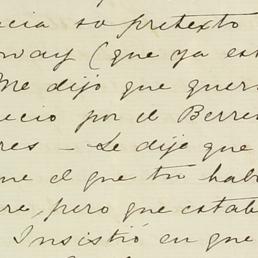 cia su pretexto
way (que ya est
Me dijo que quer
ecio por el Berre
res — Le dije que
ue el que tu hab
re, pero que estab
Insistió en que